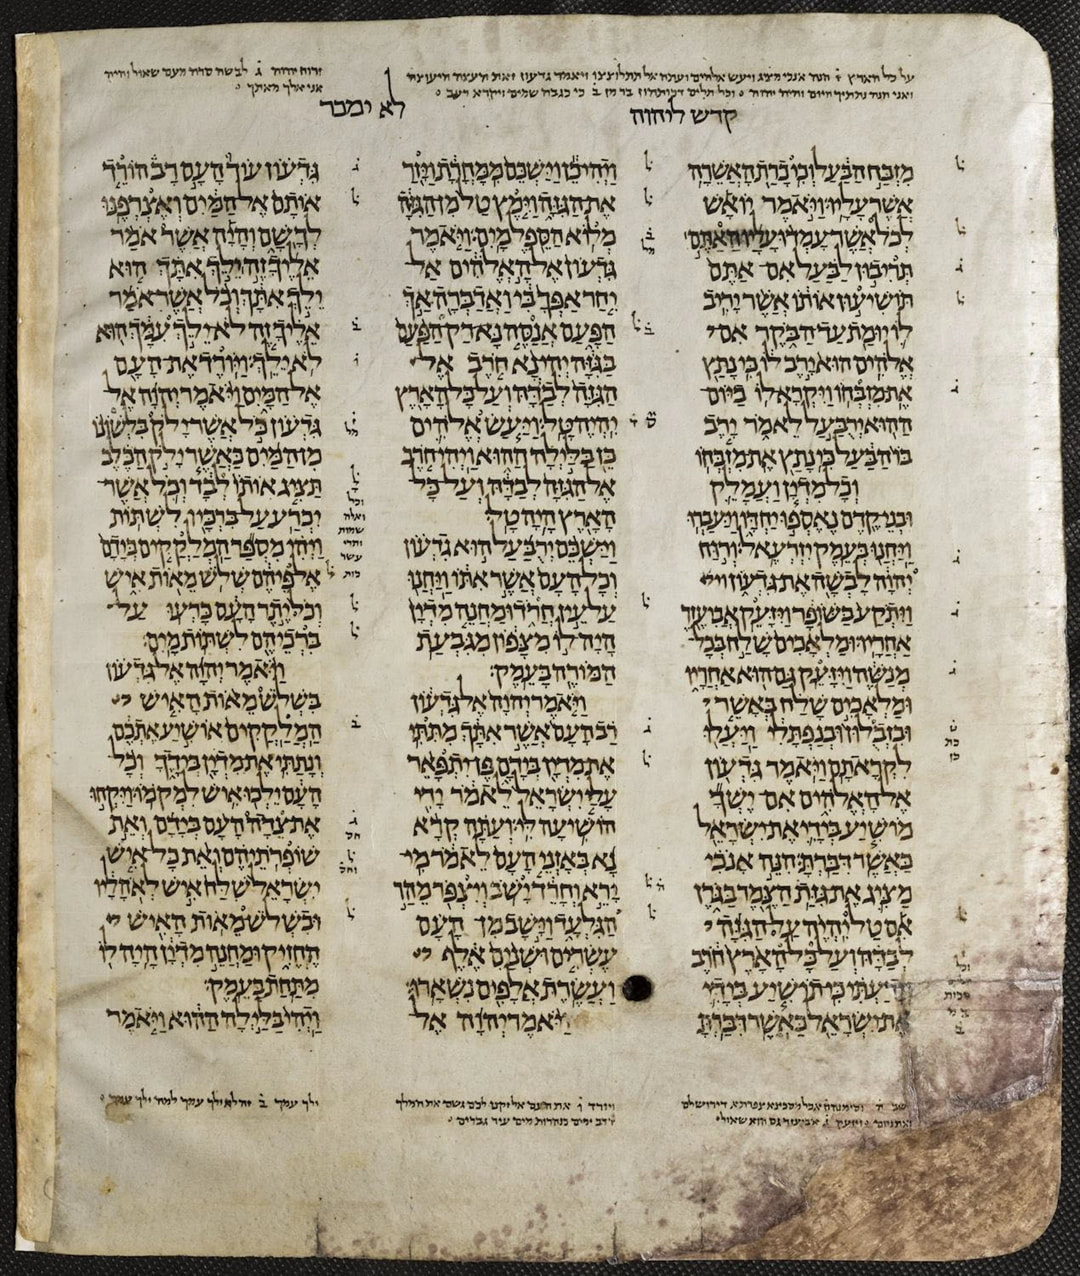 על כל הארץ ז הנה אנכי מציג ויעש אלהים ועתה אל תתלוצצו ויאמר גדעון זאת העצה היעוצה
ורוח יהוה ג לבשה סרה מעם שאול
אני אלך מאתך
קדש ליהוה לא ימכר
מזבח הבעל וכי כרת האשרה
אשר עליו ויאמר יואש
לכל אשר עמדו עליו האתם
תריבון לבעל אם אתם
תושיעון אותו אשר יריב
לו יומת עד הבקר אם
אלהים הוא ירב לו כי נתץ
את מזבחו ויקרא לו ביום
ההוא ירבעל לאמר ירב
בו הבעל כי נתץ את מזבחו
וכל מדין ועמלק
ובני קדם נאספו יחדו ויעברו
ויחנו בעמק יזרעאל ורוח
יהוה לבשה את גדעון
ויתקע בשופר ויזעק אביעזר
אחריו ומלאכים שלח בכל
מנשה ויזעק גם הוא אחריו
ומלאכים שלח באשר
ובזבלון ובנפתלי ויעלו
לקראתם ויאמר גדעון
אל האלהים אם ישך
מושיע בידי את ישראל
כאשר דברת הנה אנכי
מציג את גזת הצמר בגרן
אם טל יהיה על הגזה
לבדה ועל כל הארץ חרב
וידעתי כי תושיע בידי
את ישראל כאשר דברת
ויהי כן וישכם ממחרת ויזר
את הגזה וימץ טל מן הגזה
מלוא הספל מים ויאמר
גדעון אל האלהים אל
יחר אפך בי ואדברה אך
הפעם אנסה נא רק הפעם
בגזה יהי נא חרב אל
הגזה לבדה ועל כל הארץ
יהיה טל ויעש אלהים
כן בלילה ההוא ויהי חרב
אל הגזה לבדה ועל כל
הארץ היה טל
וישכם ירבעל הוא גדעון
וכל העם אשר אתו ויחנו
על עין חרד ומחנה מדין
היה לו מצפון מגבעת
המורה בעמק
ויאמר יהוה אל גדעון
רב העם אשר אתך מתתי
את מדין בידם פן יתפאר
עלי ישראל לאמר ידי
הושיעה לי ועתה קרא
נא באזני העם לאמר מי
ירא וחרד ישב ויצפר מהר
הגלעד וישב מן העם
עשרים ושנים אלף
ועשרת אלפים נשארו
ויאמר יהוה אל
גדעון עוד העם רב הורד
אותם אל המים ואצרפנו
לך שם והיה אשר אמר
אליך זה ילך אתך הוא
ילך אתך וכל אשר אמר
אליך זה לא ילך עמך הוא
לא ילך ויורד את העם
אל המים ויאמר יהוה אל
גדעון כל אשר ילק בלשונו
מן המים כאשר ילק הכלב
תציג אותו לבד וכל אשר
יכרע על ברכיו לשתות
ויהי מספר המלקקים בידם
אל פיהם שלש מאות איש
וכל יתר העם כרעו על
ברכיהם לשתות מים
ויאמר יהוה אל גדעון
בשלש מאות האיש
המלקקים אושיע אתכם
ונתתי את מדין בידך וכל
העם ילכו איש למקמו ויקחו
את צדה העם בידם ואת
שופרתיהם ואת כל איש
ישראל שלח איש לאהליו
ובשלש מאות האיש
החזיק ומחנה מדין היה לו
מתחת בעמק
ויהי בלילה ההוא ויאמר